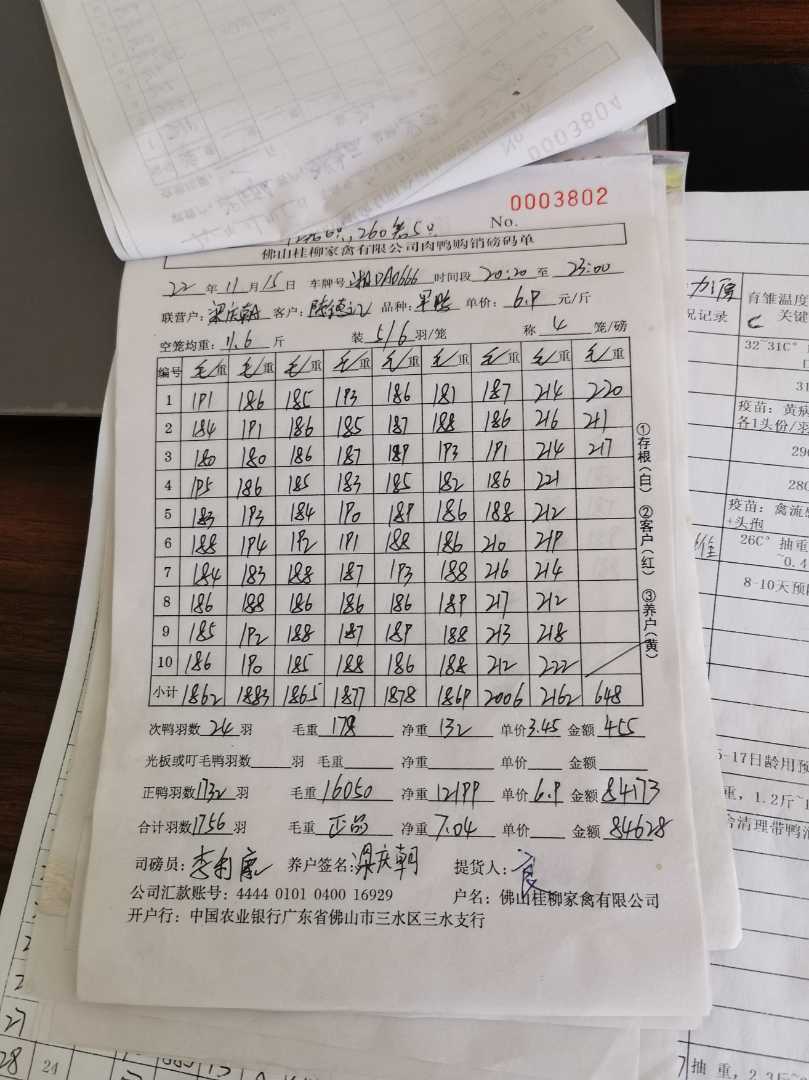 0003804
0003802
No.
佛山桂柳家禽有限公司肉鸭购销磅码单
22年11月15日 车牌号 时间段20:20至23:00
联营户:梁庆朝 客户: 品种: 单价:6.9元/斤
空笼均重:11.6斤 装5/6羽/笼 称4笼/磅
编号 毛/重 毛/重 毛/重 毛/重 毛/重 毛/重 毛/重 毛/重 毛/重
1 191 186 185 193 186 181 187 214 220
2 184 191 186 185 187 188 186 216 211
3 180 180 186 187 189 193 191 214 217
4 195 186 185 183 185 182 186 221
5 183 193 184 190 189 186 188 212
6 188 194 192 191 188 186 210 219
7 184 183 188 187 193 188 216 214
8 186 188 186 186 186 189 217 212
9 185 192 188 187 189 188 213 218
10 186 190 185 188 186 188 212 222
小计 1862 1883 1865 1877 1878 1869 2006 2162 648
次鸭羽数24羽 毛重178 净重132 单价3.45 金额455
光板或叮毛鸭羽数 羽 毛重 净重 单价 金额
正鸭羽数1732羽 毛重16050 净重12199 单价6.9 金额84173
合计羽数1756羽 毛重正品 净重7.04 单价 金额84628
司磅员: 养户签名:梁庆朝 提货人:
公司汇款账号:4444 0101 0400 16929 户名:佛山桂柳家禽有限公司
开户行:中国农业银行广东省佛山市三水区三水支行
①存根(白) ②客户(红) ③养户(黄)
育雏温度
关键
况记录
32~31C°
31
疫苗:黄病
各1头份/羽
290
280
疫苗:禽流感
+头孢
26C° 抽重
~0.4
8-10天预防
5-17日龄用预
重,1.2斤~1
合清理带鸭消
抽 重,2.3斤
27
28 24